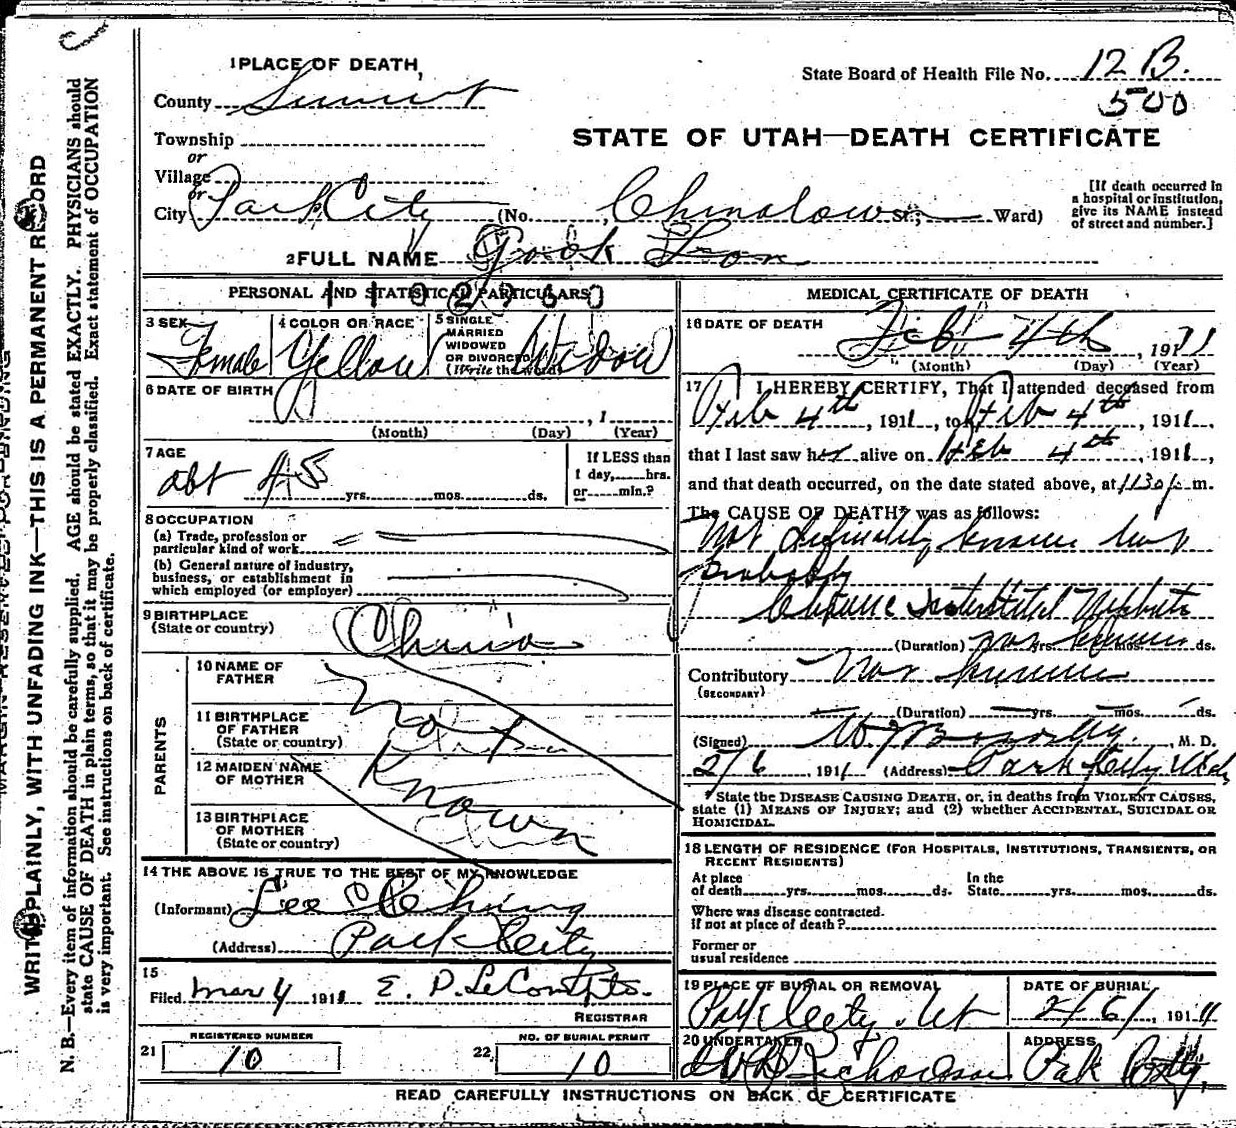 1 PLACE OF DEATH,
State Board of Health File No. 12 B.
500
County Summit
STATE OF UTAH—DEATH CERTIFICATE
Township
or
Village
or
City Park City (No. Chinatown St.; Ward)
[If death occurred in a hospital or institution, give its NAME instead of street and number.]
2 FULL NAME Gook
PERSONAL AND STATISTICAL PARTICULARS
3 SEX Female
4 COLOR OR RACE Yellow
5 SINGLE MARRIED WIDOWED OR DIVORCED (Write the word) Widow
6 DATE OF BIRTH
, 1
(Month) (Day) (Year)
7 AGE
abt 45 yrs. mos. ds.
If LESS than 1 day, hrs. or min.?
8 OCCUPATION
(a) Trade, profession or particular kind of work
(b) General nature of industry, business, or establishment in which employed (or employer)
9 BIRTHPLACE
(State or country) China
PARENTS
10 NAME OF FATHER
11 BIRTHPLACE OF FATHER (State or country)
12 MAIDEN NAME OF MOTHER
13 BIRTHPLACE OF MOTHER (State or country)
Not
Known
14 THE ABOVE IS TRUE TO THE BEST OF MY KNOWLEDGE
(Informant) Lee Chung
(Address) Park City
15
Filed Mar 4 1911 E. P. LeCompte.
REGISTRAR
REGISTERED NUMBER
21 10
NO. OF BURIAL PERMIT
22 10
MEDICAL CERTIFICATE OF DEATH
16 DATE OF DEATH
Feb 4th, 1911
(Month) (Day) (Year)
17 I HEREBY CERTIFY, That I attended deceased from
Feb 4th, 1911, to Feb 4th, 1911,
that I last saw her alive on Feb 4th, 1911,
and that death occurred, on the date stated above, at 1130 p m.
The CAUSE OF DEATH* was as follows:
Not definitely known but
probably
Chronic Interstitial Nephritis
(Duration) not yrs. known mos. ds.
Contributory Not known
(SECONDARY)
(Duration) yrs. mos. ds.
(Signed) , M. D.
2/6, 1911 (Address) Park City Utah
*State the DISEASE CAUSING DEATH, or, in deaths from VIOLENT CAUSES, state (1) MEANS OF INJURY; and (2) whether ACCIDENTAL, SUICIDAL OR HOMICIDAL.
18 LENGTH OF RESIDENCE (FOR HOSPITALS, INSTITUTIONS, TRANSIENTS, OR RECENT RESIDENTS)
At place of death yrs. mos. ds. In the State yrs. mos. ds.
Where was disease contracted. if not at place of death?
Former or usual residence
19 PLACE OF BURIAL OR REMOVAL
Park City, Ut
DATE OF BURIAL
2/6/, 1911
20 UNDERTAKER
Richardson
ADDRESS
Park City,
READ CAREFULLY INSTRUCTIONS ON BACK OF CERTIFICATE
WRITE PLAINLY, WITH UNFADING INK—THIS IS A PERMANENT RECORD
N. B.—Every item of information should be carefully supplied. AGE should be stated EXACTLY. PHYSICIANS should
state CAUSE OF DEATH in plain terms, so that it may be properly classified. Exact statement of OCCUPATION
is very important. See instructions on back of certificate.